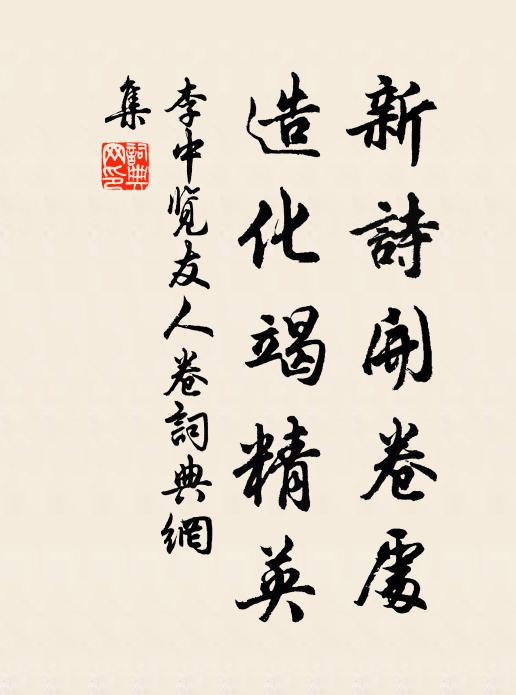 新詩開卷處
造化竭精英
李中览友人卷詞典網
集
詞典
网印